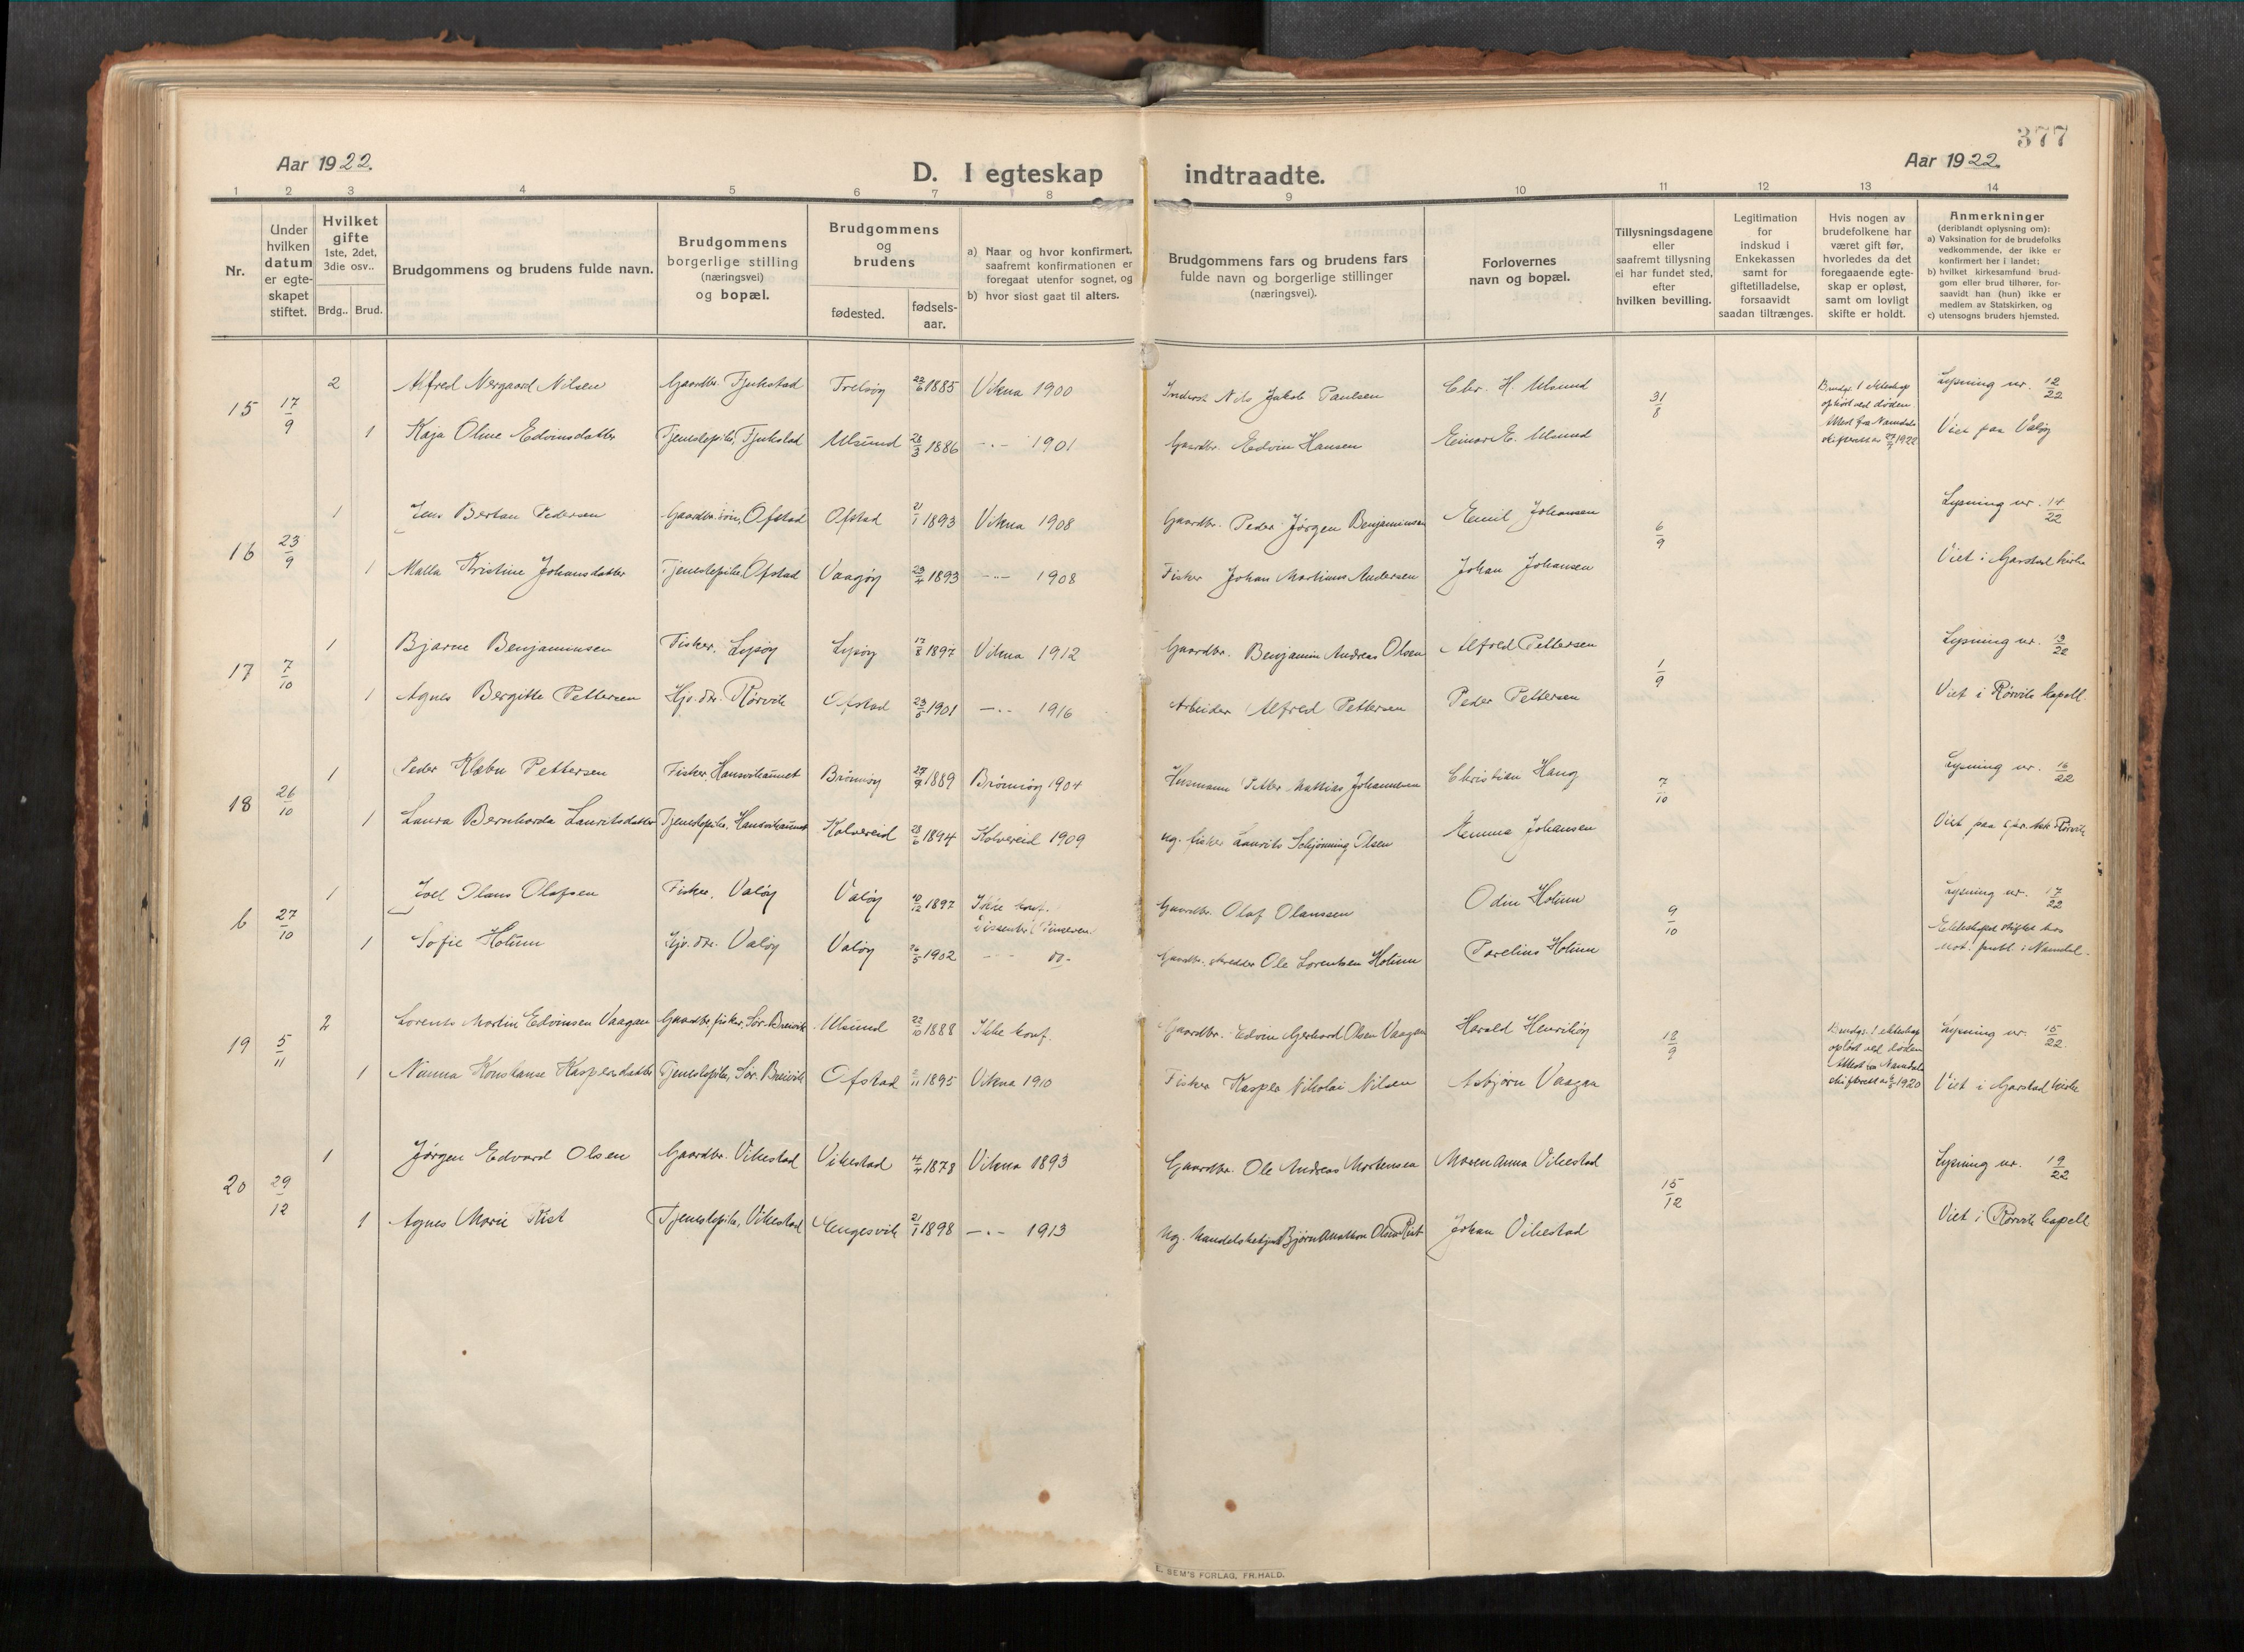 377
Aar 1922.
Aar 1922.
D. I egteskap indtraadte.
1 2 3 4 5 6 7 8 9 10 11 12 13 14
Nr.
Under hvilken datum er egteskapet stiftet.
Hvilket gifte 1ste, 2det, 3die osv..
Brdg.. Brud.
Brudgommens og brudens fulde navn.
Brudgommens borgerlige stilling (næringsvei) og bopæl.
Brudgommens og brudens
fødested.
fødsels-aar.
a) Naar og hvor konfirmert, saafremt konfirmationen er foregaat utenfor sognet, og
b) hvor sidst gaat til alters.
Brudgommens fars og brudens fars fulde navn og borgerlige stillinger (næringsvei).
Forlovernes navn og bopæl.
Tillysningsdagene eller saafremt tillysning ei har fundet sted, efter hvilken bevilling.
Legitimation for indskud i Enkekassen samt for giftetilladelse, forsaavidt saadan tiltrænges.
Hvis nogen av brudefolkene har været gift før, hvorledes da det foregaaende egteskap er opløst, samt om lovligt skifte er holdt.
Anmerkninger (deriblandt oplysning om):
a) Vaksination for de brudefolks vedkommende, der ikke er konfirmert her i landet;
b) hvilket kirkesamfund brudgom eller brud tilhører, forsaavidt han (hun) ikke er medlem av Statskirken, og
c) utensogns bruders hjemsted.
15 17/9
2 Alfred Nergaard Nilsen Gaardbr. Fjukstad Trelsøy 23/6 1885 Vikna 1900 Inderst Nils Jakob Paulsen Chr. H. Ulsund 31/8 Brudg. 1 ekteskap opløst ved døden. Attest fra Namdals skifterett av 1922 Lysning nr. 12/22
1 Kaja Oline Edvinsdatter Tjenestepike, Fjukstad Ulsund 28/3 1886 -"- 1901 Gaardbr. Edvin Hansen Einar E. Ulsund Viet paa Valøy
16 23/9
1 Jens Bertau Pedersen Gaardbr.søn, Ofstad Ofstad 21/1 1893 Vikna 1908 Gaardbr. Peder Jørgen Benjaminsen Emil Johansen 6/9 Lysning nr. 14/22
1 Malla Kristine Johansdatter Tjenestepike, Ofstad Vaagøy 23/4 1893 -"- 1908 Fisker Johan Martinus Andersen Johan Johansen Viet i Garstad kirke
17 7/10
1 Bjarne Benjaminsen Fisker, Lysøy Lysøy 17/8 1897 Vikna 1912 Gaardbr. Benjamin Andreas Olsen Alfred Pettersen 1/9 Lysning nr. 13/22
1 Agnes Bergitte Pettersen Hjv. dtr. Rørvik Ofstad 23/5 1901 -"- 1916 Arbeider Alfred Pettersen Peder Pettersen Viet i Rørvik kapell
18 26/10
1 Peder Klæbu Pettersen Fisker, Hansvikaunet Brønnøy 27/9 1889 Brønnøy 1904 Husmann Petter Mattias Johannesen Christian Haug 7/10 Lysning nr. 16/22
1 Laura Bernharda Lauritsdatter Tjenestepike, Hansvikaunet Kolvereid 28/6 1894 Kolvereid 1909 Ug. fisker Laurits Schjønning Olsen Emma Johansen Viet paa Rørvik
6 27/10
1 Joel Olaus Olafsen Fisker, Valøy Valøy 10/12 1897 Ikke konf. Dissenter (Pinseven) Gaardbr. Olaf Olaussen Odin Holum 9/10 Lysning nr. 17/22
1 Sofie Holum Hjv. dtr. Valøy Valøy 1902 - - do- Gaardbr. skredder Ole Lorentsen Holum Parelius Holum Ekteskapet stiftet hos not. publ. i Namdal.
19 5/11
2 Lorents Martin Edvinsen Vaagan Gaardbr. fisker, Sør-Breivik Ulsund 22/10 1888 Ikke konf. Gaardbr. Edvin Gerhard Olsen Vaagan Harald Henrikøy 18/9 Brudgs. 1 ekteskap opløst ved døden Attest fra Namdals skifterett av 1920 Lysning nr. 15/22.
1 Nanna Konstanse Kaspersdatter Tjenestepike, Sør. Breivik Ofstad 1895 Vikna 1910 Fisker Kasper Nikolai Nilsen Asbjørn Vaagan Viet i Garstad kirke
20 29/12
1 Jørgen Edvard Olsen Gaardbr. Vikestad Vikestad 4/4 1878 Vikna 1893 Gaardbr. Ole Andreas Mortensen Maren Anna Vikestad 15/12 Lysning nr. 19/22
1 Agnes Marie Rist Tjenestepike, Vikestad Engesvik 21/1 1898 -"- 1913 Ug. handelsbetjent Bjørn Anathon Olsen Rist Johan Vikestad Viet i Rørvik kapell
E. SEM'S FORLAG, FR.HALD.